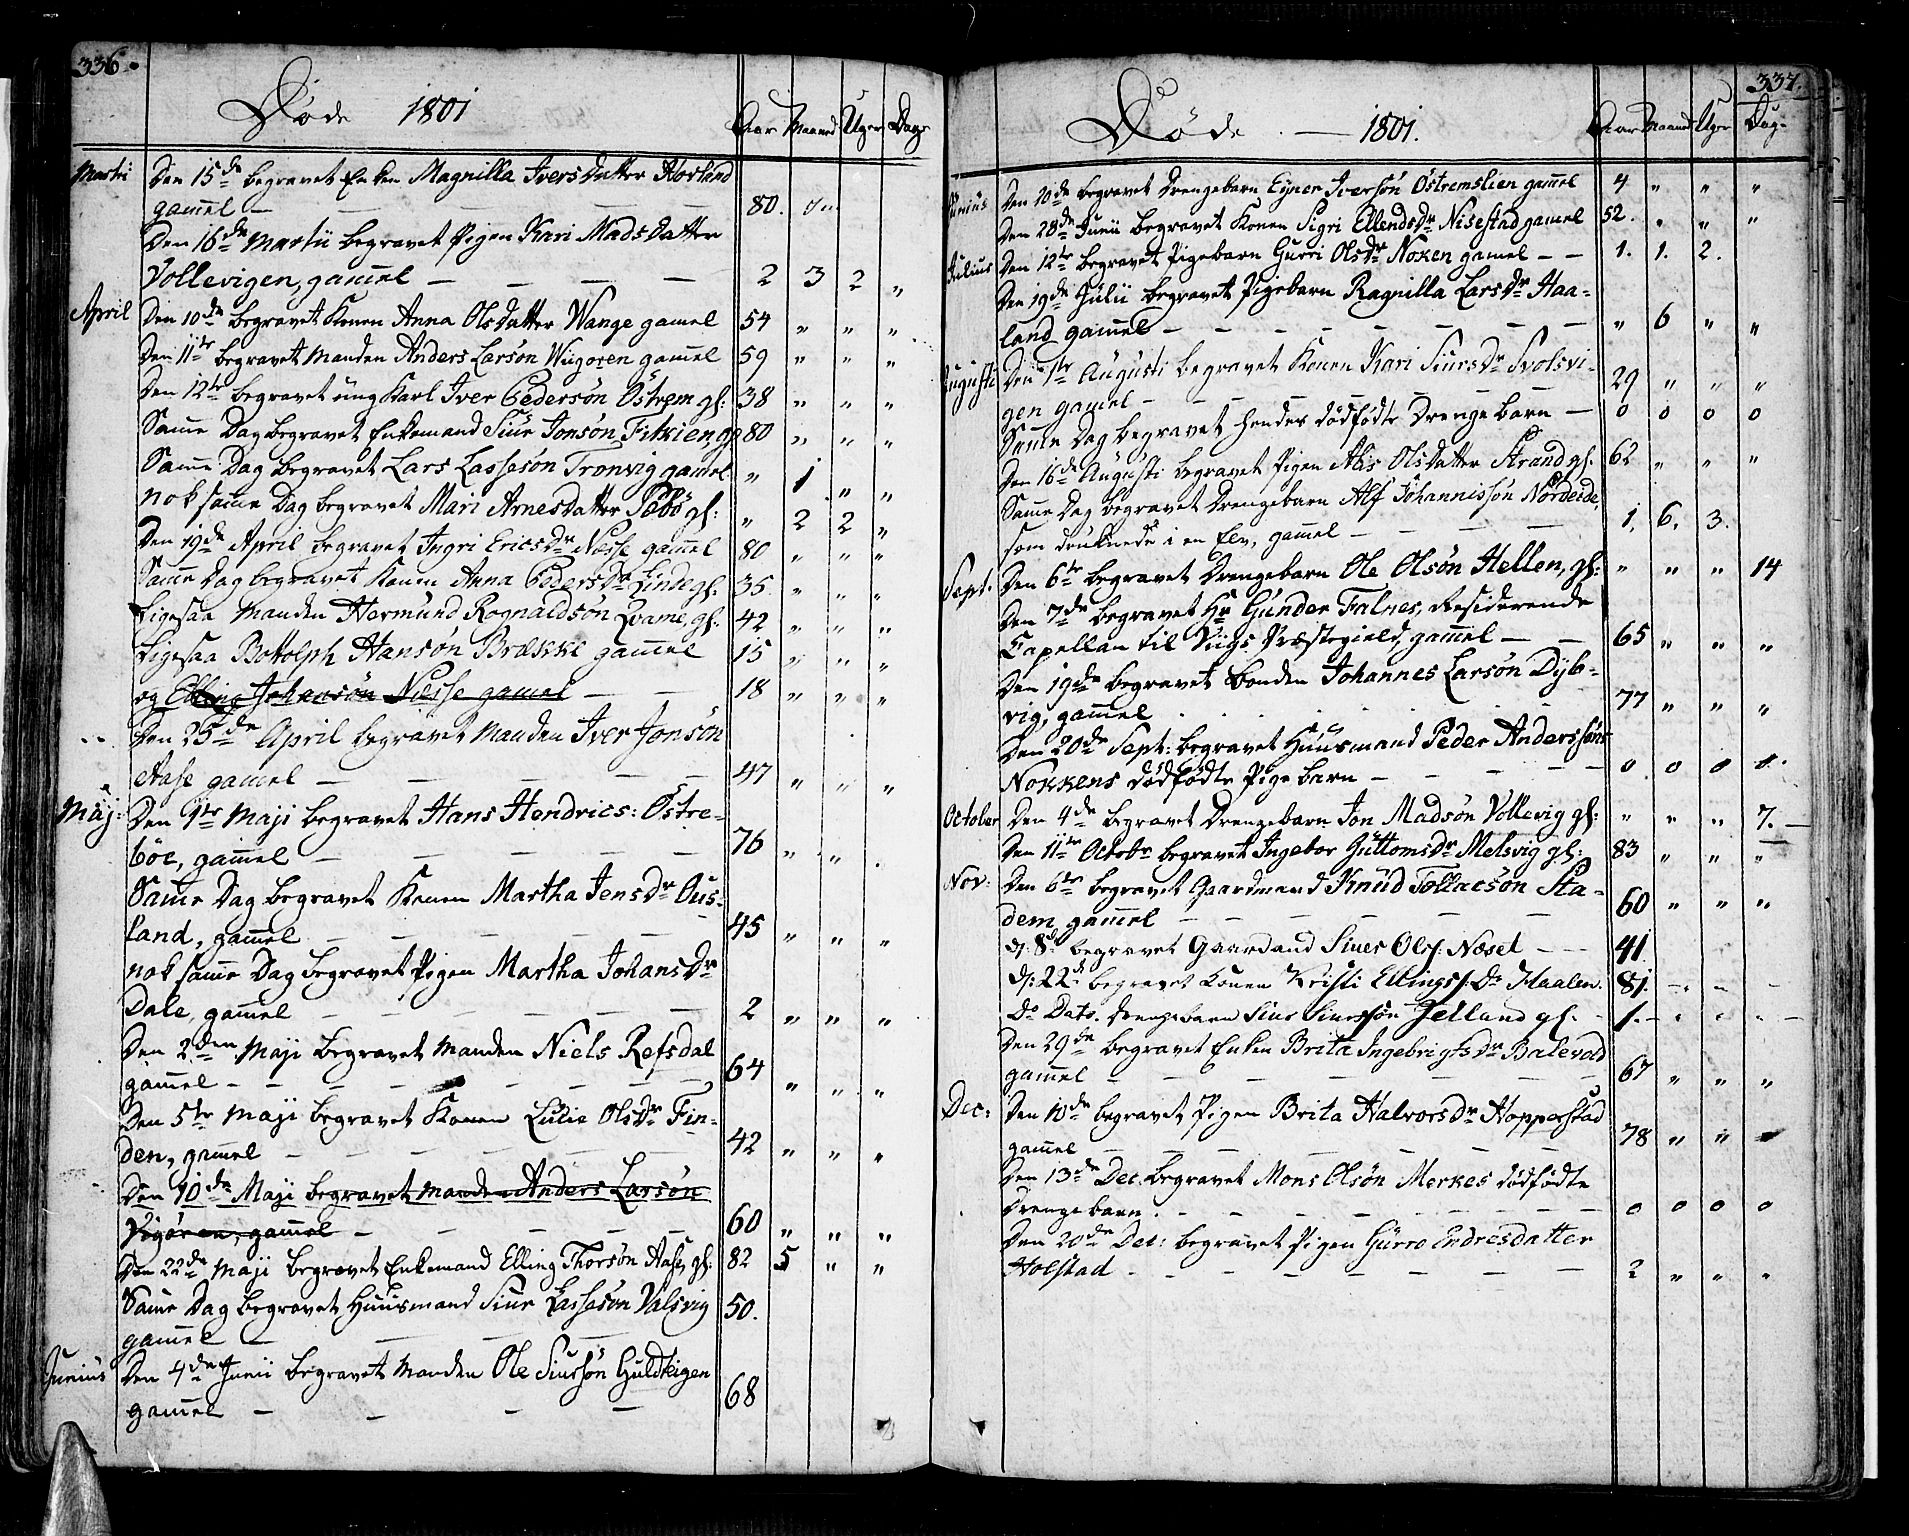 336.
Døde 1801
Aar Maaned Uger Dage
Martii Den 15de begravet Enken Magnilla Ivers Datter Hovland
gamel — 80.
Den 16de Martii begravet Pigen Kari Mads Datter
Vollevigen, gam̄el — 2 3 2 "
April Den 10de begravet Konen Anna Olsdatter Wange gamel 54 " " "
Den 11te begravet Manden Anders Larsøn Wiigøren gam̄el 59 " " "
Den 12te begravet ung Karl Iver Pedersøn Østrem gl: 38 " " "
Sam̄e Dag begravet Enkemand Siur Jonsøn Fitkien gl 80 " " "
Sam̄e Dag begravet Lars Lassesøn Tronvig gamel " 1 " "
nok sam̄e Dag begravet Mari Arnesdatter Sæbø gl: " 2 2 "
Den 19de April begravet Ingri Ericsdr Næsse gam̄el 80 " " "
Sam̄e Dag begravet Konen Anna Pedersdr Linde gl: 35 " " "
Ligesaa Manden Hermund Rognaldsøn Qvame, gl: 42 " " "
Ligesaa Bottolph Hansøn Brække gam̄el 15 " " "
og Elling Johansøn Næsse gamel — 18 " " "
Den 25de April begravet Manden Iver Jonsøn
Aase gamel — 47 " " "
Maij: Den 1ste Maji begravet Hans Hendrics: Østre-
bøe, gam̄el — 76 " "
Sam̄e Dag begravet Konen Martha Jensdr Ous-
land, gam̄el — 45 " " "
nok sam̄e Dag begravet Pigen Martha Johansdr
Dale, gam̄el — 2 " " "
Den 2den Maji begravet Manden Niels Refsdal
gam̄el — 64 " " "
Den 5te Maji begravet Konen Lulie Olsdr Fin-
den, gam̄el — 42 " " "
Den 10de Maji begravet Manden Anders Larsøn
Vigøren, gam̄el — 60 " " "
Den 22de Maji begravet Enkemand Elling Thorsøn Aase, gl: 82 5 " "
Sam̄e Dag begravet Huusmand Siur Lassesøn Valsvig
gam̄el — 50.
Junius Den 4de Junii begravet Manden Ole Siursøn Guldteigen
gam̄el — 68
337.
Døde — 1801.
Aar Maaned Uger Dag-
Junius Den 10de begravet Drengebarn Ejner Iversøn Østremslien gam̄el 4 " " "
Den 28de Junii begravet Konen Sigri Ellendsdr Nisestad gamel 52. " " "
Julius Den 12te begravet Pigebarn Gurri Olsdr Noxen gamel — 1. 1. 2.
Den 19de Julii begravet Pigebarn Ragnilla Larsdr Haa-
land gam̄el — " 6 " "
Augusti Den 1ste Augusti begravet Konen Kari Siursdr Svolsvi-
gen gam̄el — 29 " " "
Sam̄e Dag begravet hendes dødfødte Drenge barn — 0 0 0 0
Den 16de Augusti begravet Pigen Olsdatter Strand gl: 62 " " "
Sam̄e Dag begravet Drengebarn Alf Johannissøn Nordeide,
som druknede i en Elv, gam̄el — 1, 6, 3.
Sept. Den 6te begravet Drengebarn Ole Olsøn Hellen, gl: " " " 14
Den 7de begravet Hr Gunder Falnes, Residerende
Capellan til Viigs Præstegield, gam̄el — 65 " " "
Den 19de begravet bonden Johannes Larsøn Dyb-
vig, gam̄el 77 " " "
Den 20de Sept: begravet Huusmand Peder Anderssøns
Nokkens dødfødte Pige barn — 0 0 0 0.
October Den 4de begravet Drengebarn Jon Madsøn Vollevig gl: " " " 7.
Den 11te Octobr begravet Ingebor Guttomsdr Melsvig gl: 83 " " "
Nov: Den 6te begravet Gaardmand Knud Tollacsøn Sta-
dem gam̄el — 60 " " "
d: 8de begravet Gaardand Siuer Ols: Nesel — 41
d: 22de begravet Konen Kristi Ellings: Dr Haalen. 81.
Do Dato. drengebarn Siur Siurssøn Jelland gl. 1.
Den 29de begravet Enken Brita Ingebrigtsdr Balevold
gam̄el — 67 " " "
Dec: Den 10de begravet Pigen Brita Halvorsdr Hopperstad
gam̄el — 78 " "
Den 13de Dec. begravet Mons Olsøn Merkes dødfødte
Drengebarn. — 0 0 0 0
Den 20de Dec: begravet Pigen Gurro Endresdatter
Holstad — 2 " " "